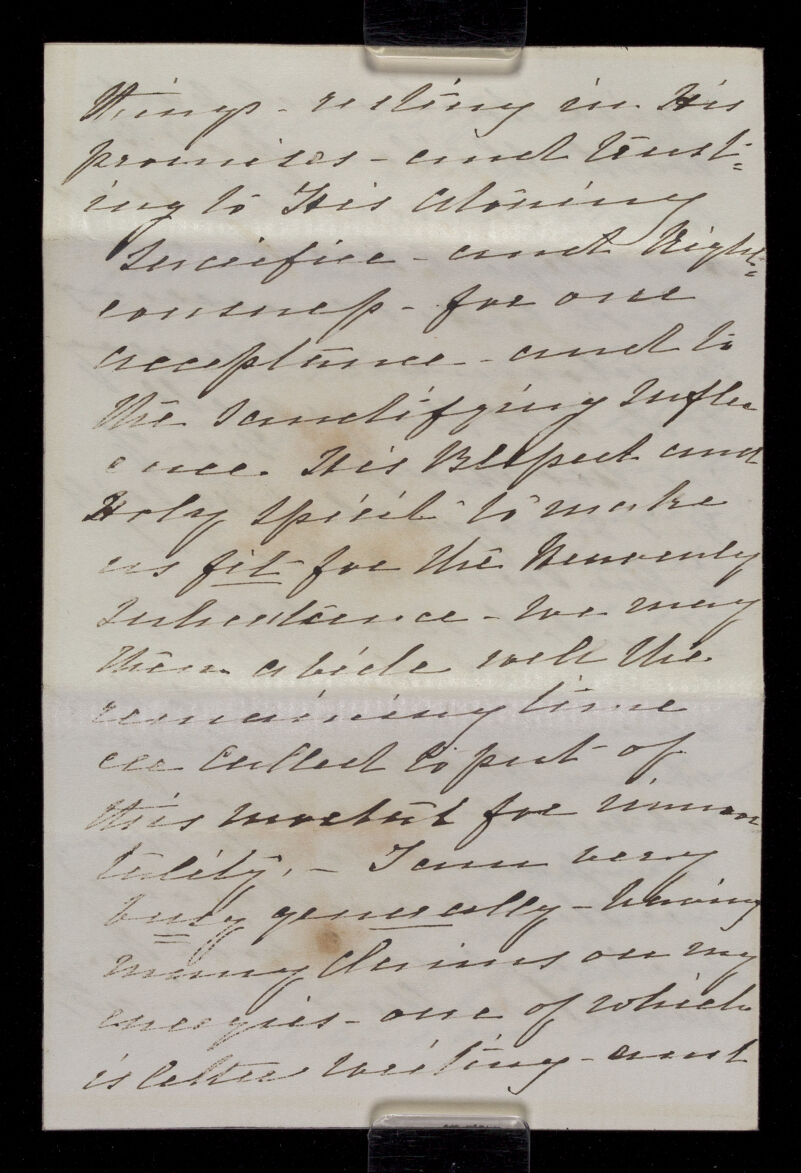 things - resting in His
promises - and trust=
ing to His Atoning
Sacrifice - and Right=
eousness - for our
acceptance - and to
the Sanctifying Influ
ence His Blessed and
Holy Spirit to make
us fit for the Heavenly
Inheritance - we may
then abide well the
remaining time
called to put of
this mortal for immor
tality. - I am very
busy generally - having
many claims on my
energies - one of which
is letter writing - and